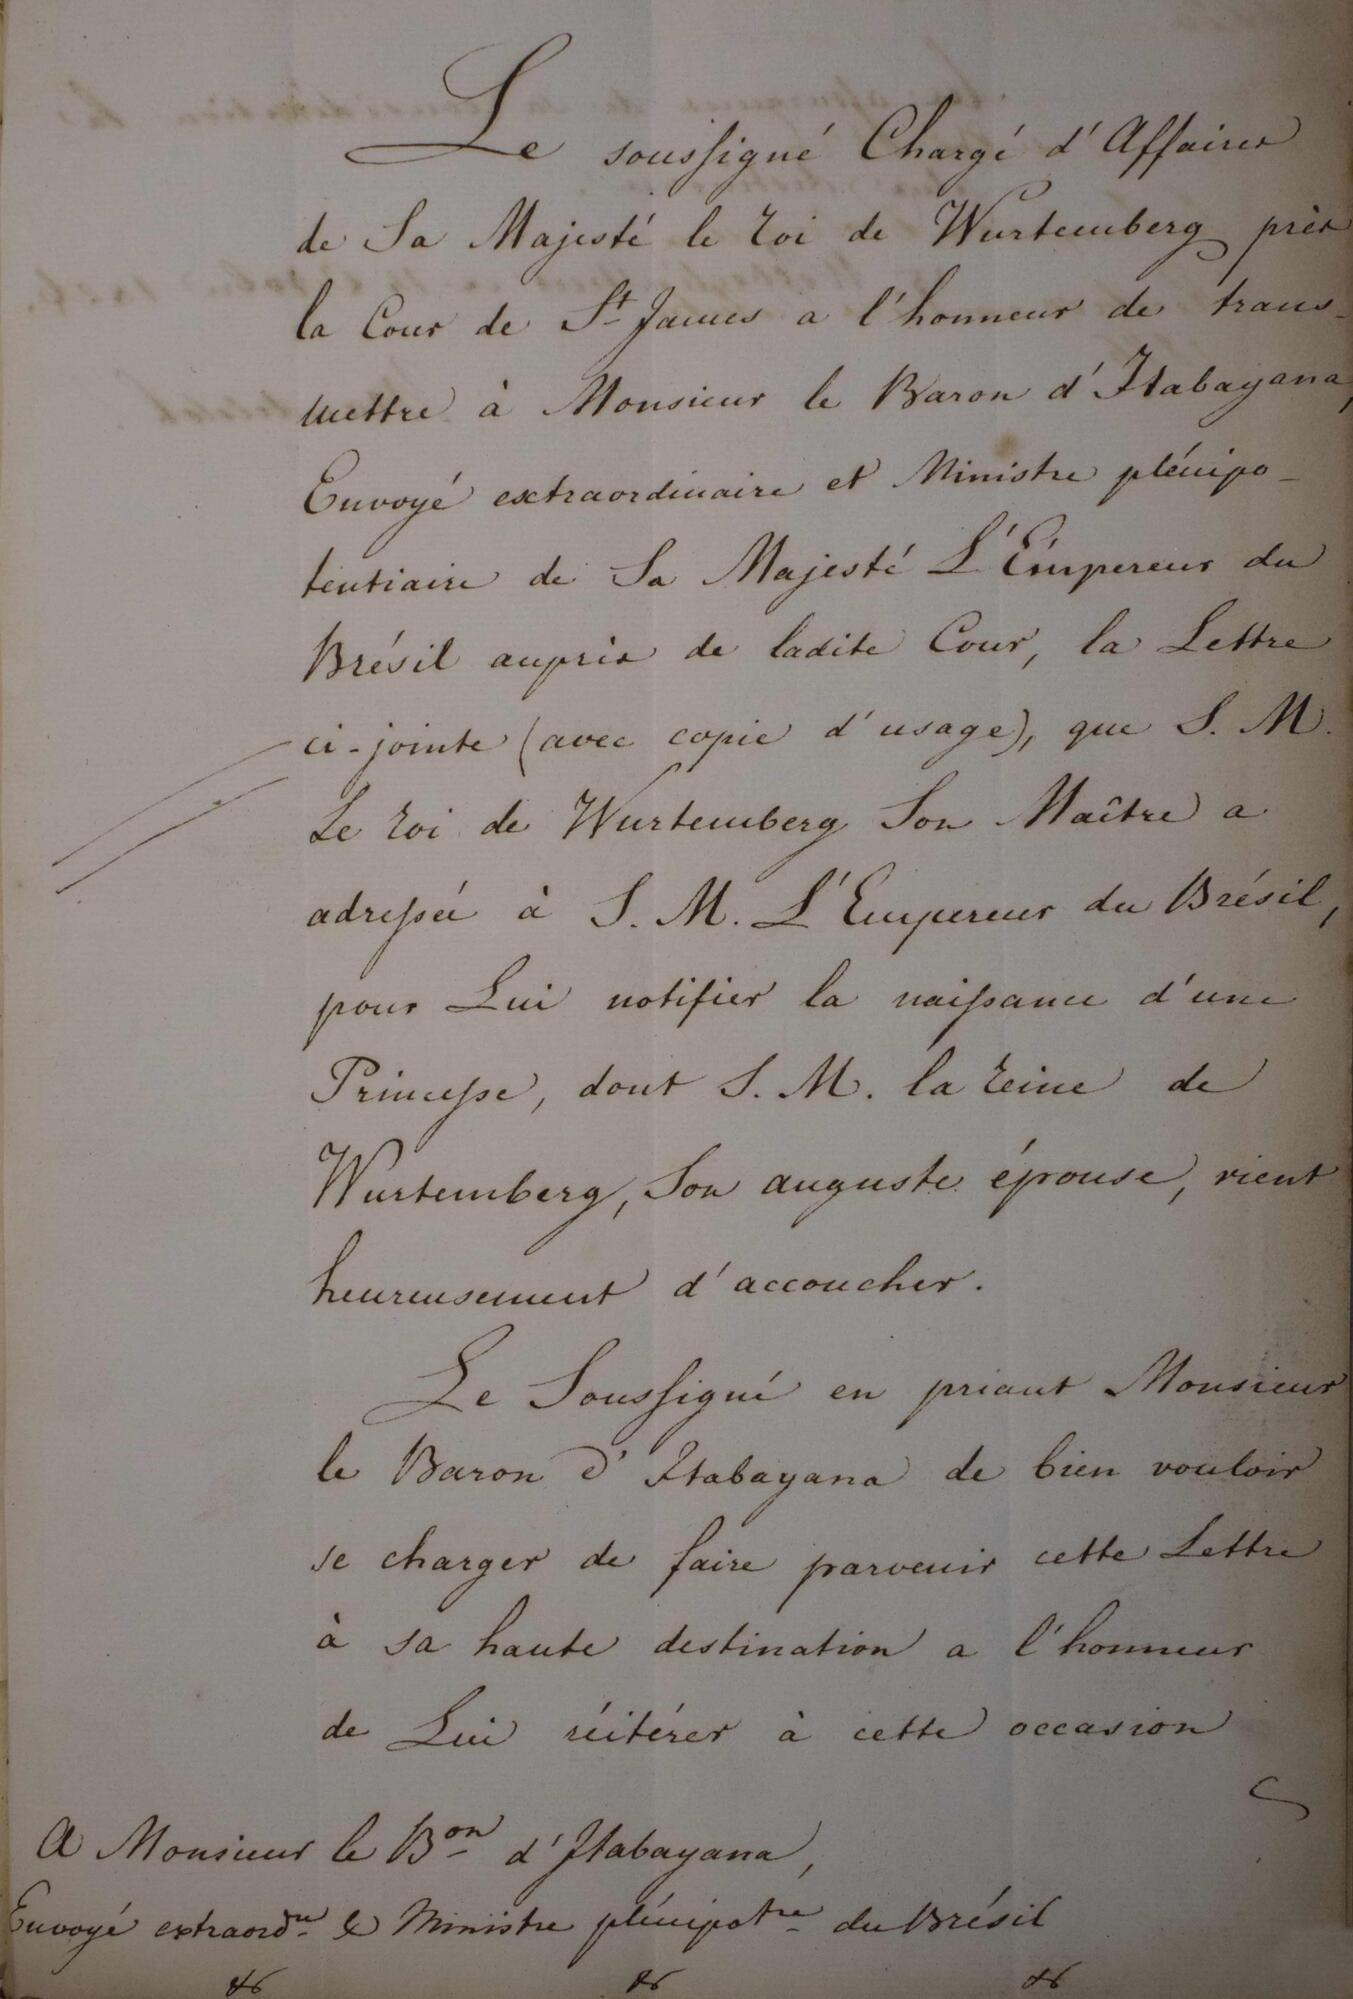 Le soussigné Chargé d'Affaires
de Sa Majesté le roi de Wurtemberg près
la Cour de St James a l'honneur de trans-
mettre à Monsieur le Baron d'Itabayana,
Envoyé extraordinaire et Ministre plénipo-
tentiaire de Sa Majesté L'Émpereur du
Brésil auprès de ladite Cour, la Lettre
ci-jointe (avec copie d'usage), que S. M.
Le roi de Wurtemberg Son Maître a
adressée à S. M. L'Empereur du Brésil,
pour Lui notifier la naissance d'une
Princesse, dont S. M. la reine de
Wurtemberg, Son auguste épouse, vient
heureusement d'accoucher.
Le Soussigné en priant Monsieur
le Baron d'Itabayana de bien vouloir
se charger de faire parvenir cette Lettre
à sa haute destination a l'honneur
de Lui réitérer à cette occasion
A Monsieur le Bon d'Itabayana,
Envoyé extraordre & Ministre plénipotre du Brésil
&c &c &c